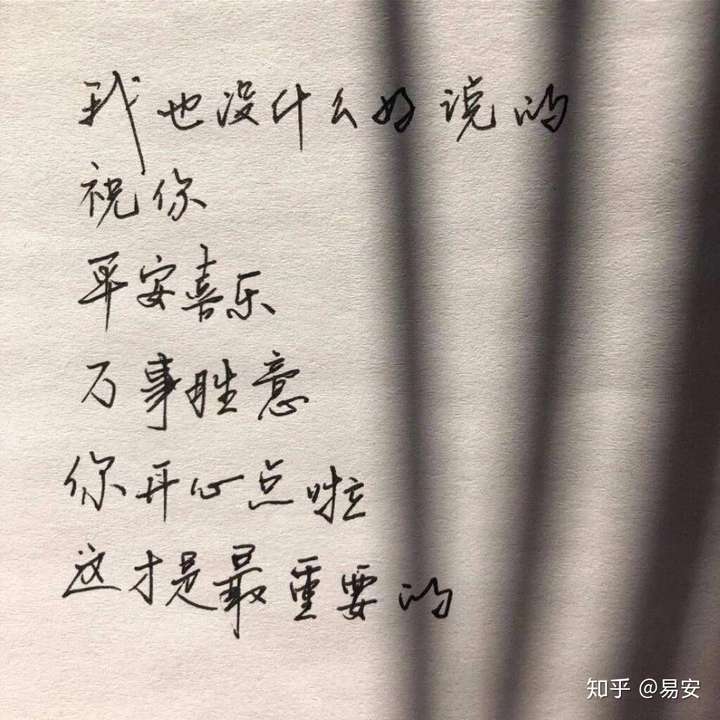 我也没什么好说的
祝你
平安喜乐
万事胜意
你开心点啦
这才是最重要的
知乎 @易安